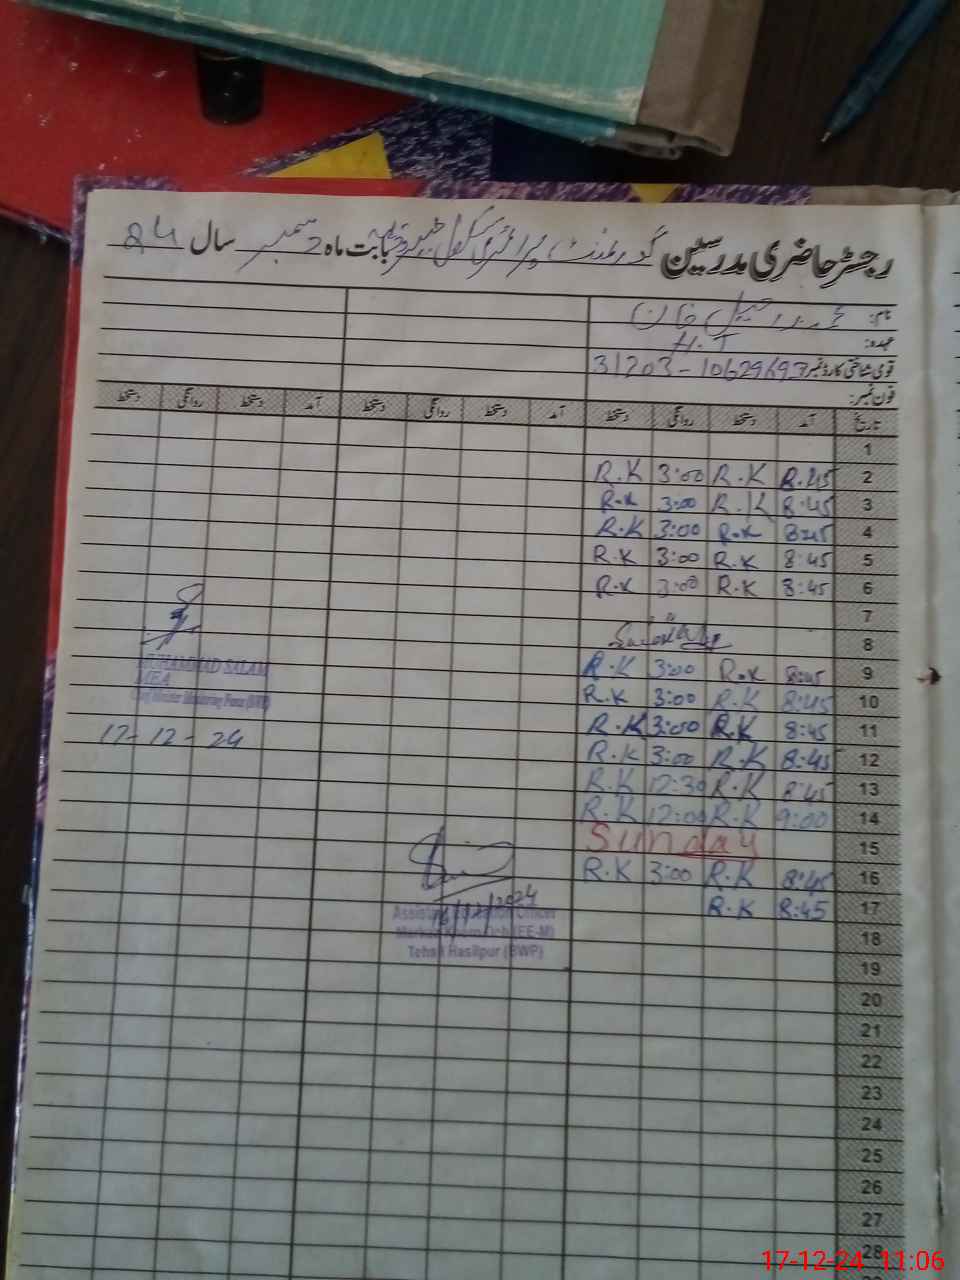 رجسٹر حاضری مدرسین گورنمنٹ پرائمری سکول بابت ماہ دسمبر سال 24
نام: خان
عہدہ: H.T
قومی شناختی کارڈ نمبر 31203-10629693
فون نمبر:
تاریخ آمد دستخط روانگی دستخط آمد دستخط روانگی دستخط آمد دستخط روانگی دستخط
1
2 8:45 R.K 3:00 R.K
3 8:45 R.K 3:00 R.K
4 8:45 R.K 3:00 R.K
5 8:45 R.K 3:00 R.K
6 8:45 R.K 3:00 R.K
7
8
9 8:45 R.K 3:00 R.K
10 8:45 R.K 3:00 R.K
11 8:45 R.K 3:00 R.K
12 8:45 R.K 3:00 R.K
13 8:45 R.K 12:30 R.K
14 9:00 R.K 12:00 R.K
15 Sunday
16 8:45 R.K 3:00 R.K
17 8:45 R.K
18
19
20
21
22
23
24
25
26
27
28
MUHAMMAD SALAM
MEA
17-12-24
16/12/2024
Assistant Education Officer
Markaz (EE-M)
Tehsil Hasilpur (BWP)
17-12-24 11:06